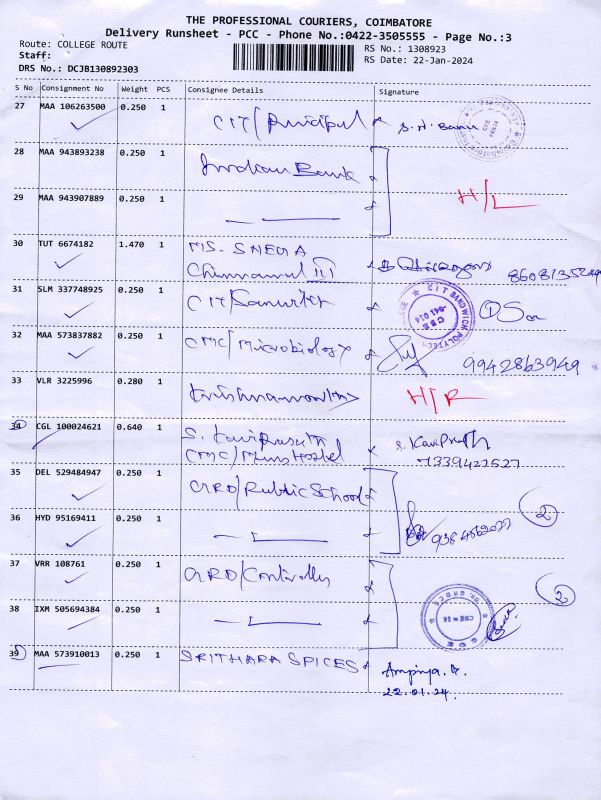 THE PROFESSIONAL COURIERS, COIMBATORE
Delivery Runsheet - PCC - Phone No.:0422-3505555 - Page No.:3
Route: COLLEGE ROUTE
RS No.: 1308923
Staff:
RS Date: 22-Jan-2024
DRS No.: DCJB130892303
S No Consignment No Weight PCS Consignee Details Signature
27 MAA 106263500 0.250 1 CIT/
28 MAA 943893238 0.250 1 Indian Bank
29 MAA 943907889 0.250 1 H/L
30 TUT 6674182 1.470 1 MS. SNEGA
31 SLM 337748925 0.250 1 CIT/
32 MAA 573837882 0.250 1 CMC/Microbiology 9942863949
33 VLR 3225996 0.280 1 H/R
34 CGL 100024621 0.640 1 S.
CMC/Mens Hostel 7339427527
35 DEL 529484947 0.250 1 GRD/Public School 2
36 HYD 95169411 0.250 1
37 VRR 108761 0.250 1 GRD/ 2
38 IXM 505694384 0.250 1
39 MAA 573910013 0.250 1 SRITHARA SPICES
22.01.24.